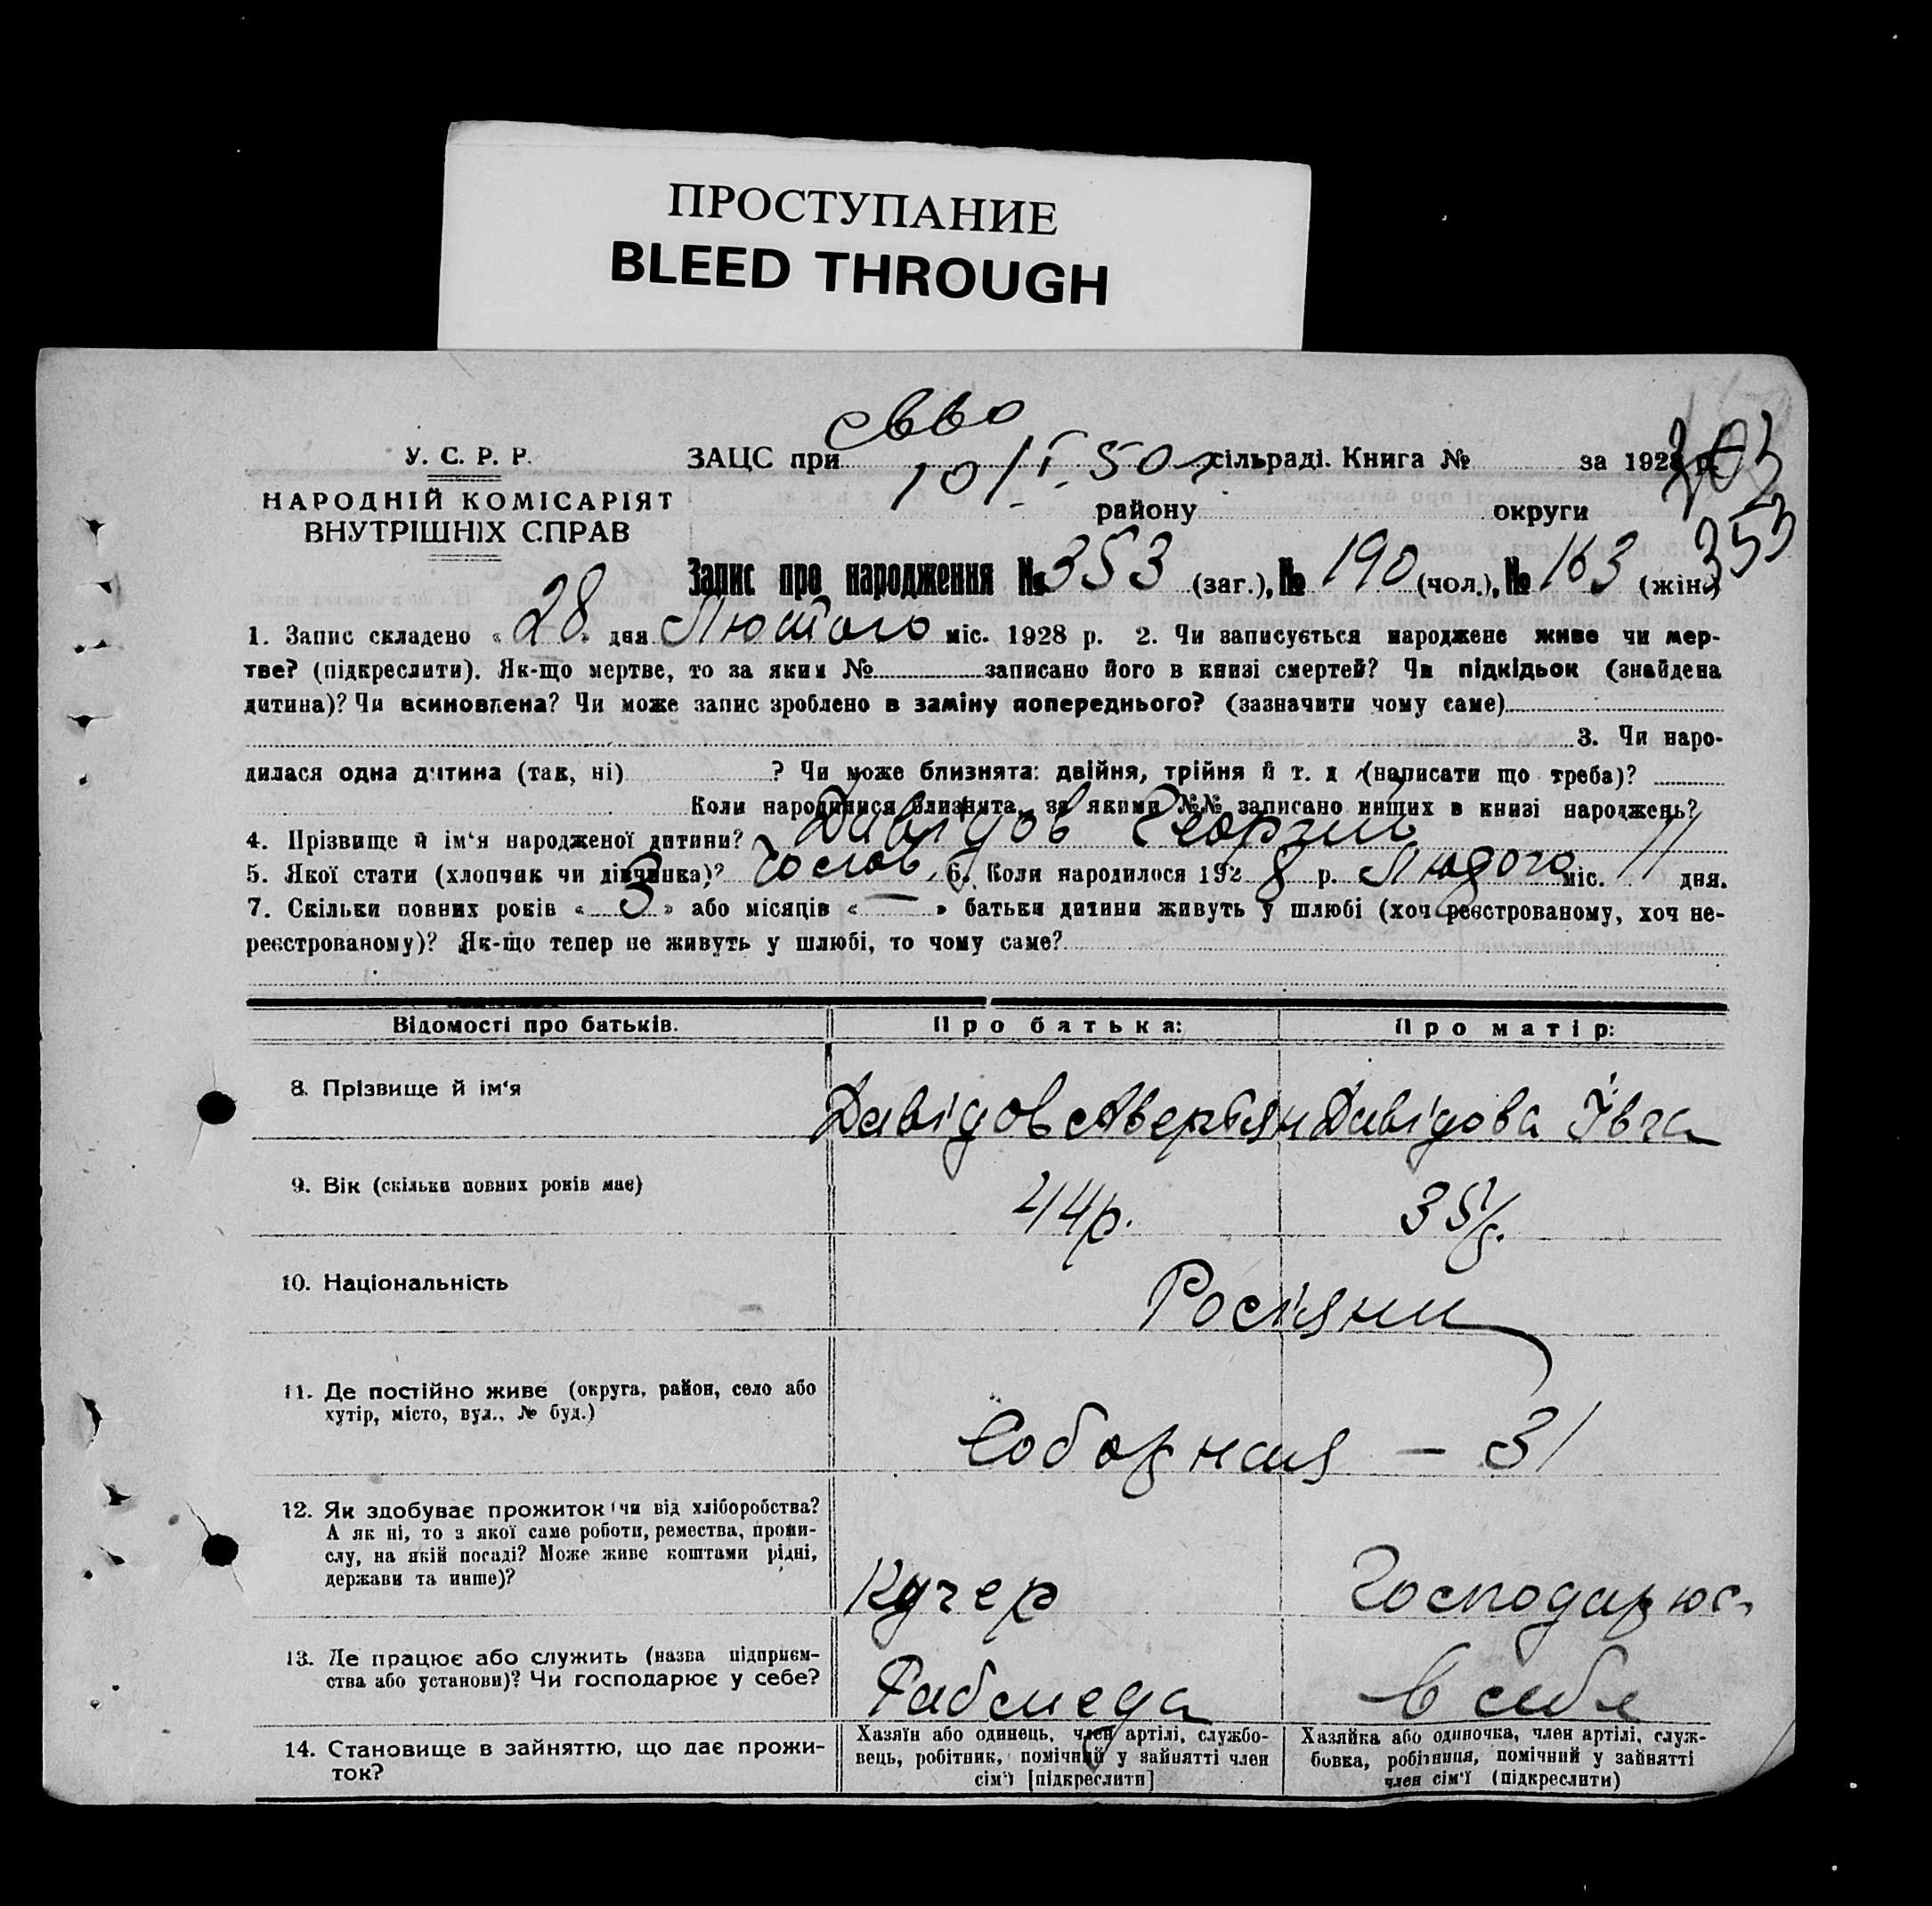 ПРОСТУПАНИЕ
BLEED THROUGH
У. С. Р. Р.
НАРОДНІЙ КОМІСАРІЯТ
ВНУТРІШНІХ СПРАВ
ЗАЦС при сільраді. Книга № за 1928 р.
10/I 50
району округи
353
Запис про народження № 353 (заг.), № 190 (чол.), № 163 (жін.)
1. Запис складено « 28 » дня Лютого міс. 1928 р. 2. Чи записується народжене живе чи мер-
тве? (підкреслити). Як-що мертве, то за яким № записано його в книзі смертей? Чи підкідьок (знайдена
дитина)? Чи всиновлена? Чи може запис зроблено в заміну попереднього? (зазначити чому саме)
3. Чи наро-
дилася одна дитина (так, ні) ? Чи може близнята: двійня, трійня й т. д (написати що треба)?
Коли народилися близнята, за якими №№ записано инших в книзі народжень?
4. Прізвище й ім'я народженої дитини? Давідов Георгий
5. Якої стати (хлопчик чи дівчинка)? 6. Коли народилося 1928 р. Лютого міс. 11 дня.
7. Скільки повних років « 3 » або місяців « — » батьки дитини живуть у шлюбі (хоч реєстрованому, хоч не-
реєстрованому)? Як-що тепер не живуть у шлюбі, то чому саме?
Відомості про батьків. Про батька: Про матір:
8. Прізвище й ім'я Давідов Аверьян Давідова Івга
9. Вік (скільки повних років має) 44р. 35р.
10. Національність Росіяни
11. Де постійно живе (округа, район, село або
хутір, місто, вул., № буд.)
Соборная – 31
12. Як здобуває прожиток чи від хліборобства?
А як ні, то з якої саме роботи, ремества, проми-
слу, на якій посаді? Може живе коштами рідні,
держави та инше)?
Кучер Господарює
13. Де працює або служить (назва підприєм-
ства або установи)? Чи господарює у себе?
в себе
14. Становище в зайняттю, що дає прожи-
ток?
Хазяїн або одинець, член артілі, службо-
вець, робітник, помічний у зайнятті член
сім'ї [підкреслити]
Хазяйка або одиночка, член артілі, служ-
бовка, робітниця, помічний у зайнятті
член сім'ї (підкреслити)